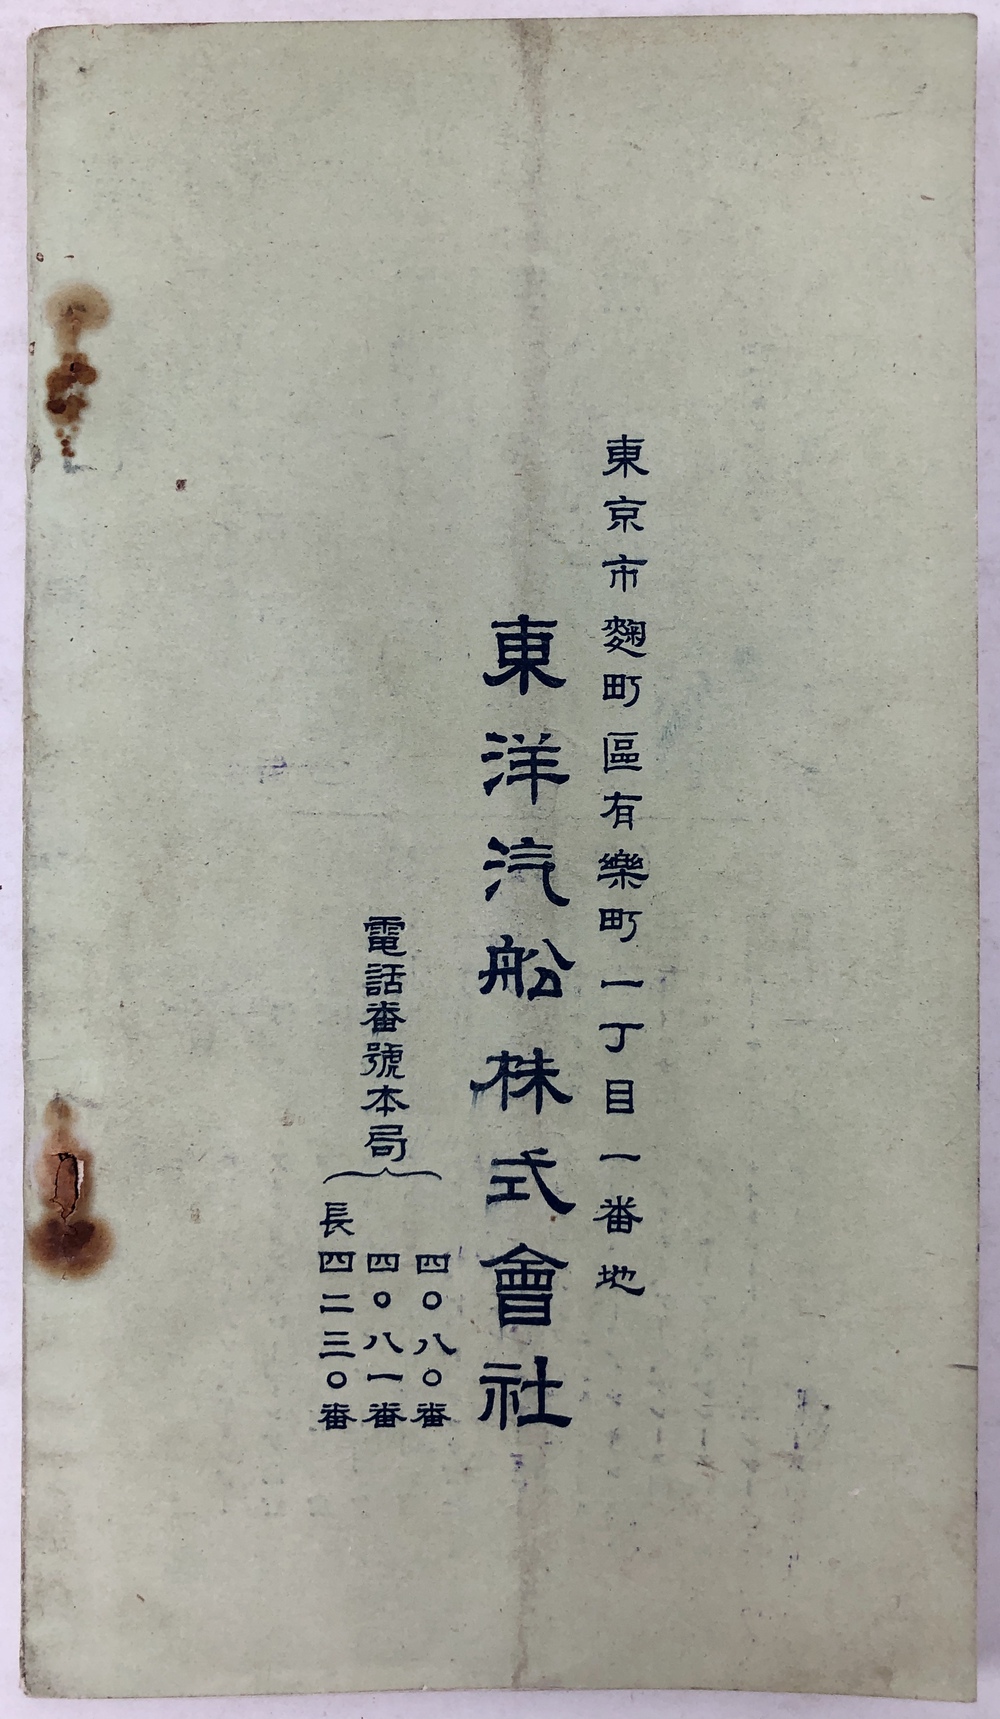 東京市麴町區有樂町一丁目一番地
東洋汽船株式會社
電話番號本局
四〇八〇番
四〇八一番
長四二三〇番